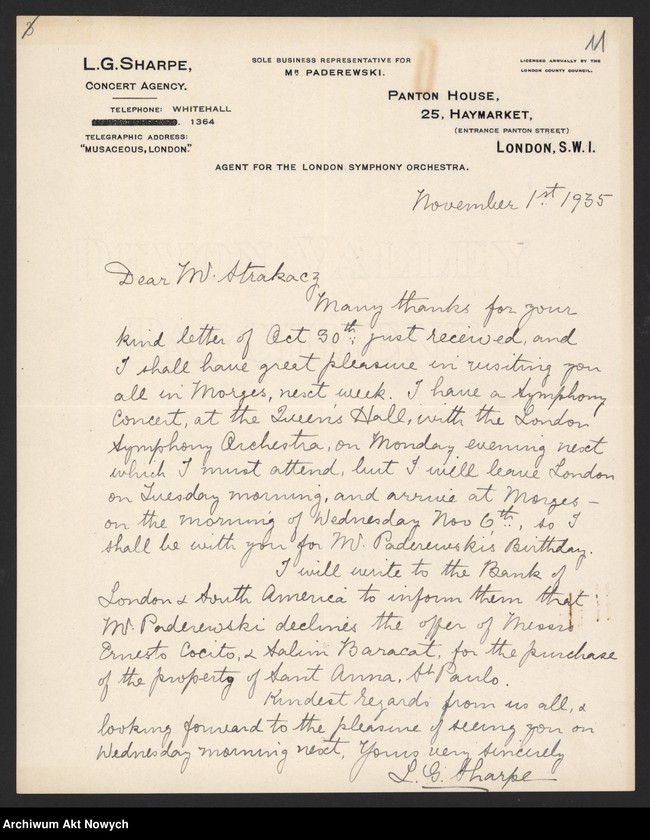 L.G. SHARPE,
CONCERT AGENCY.
TELEPHONE: WHITEHALL
1364
TELEGRAPHIC ADDRESS:
"MUSACEOUS, LONDON."
SOLE BUSINESS REPRESENTATIVE FOR
MR PADEREWSKI.
LICENSED ANNUALLY BY THE
LONDON COUNTY COUNCIL.
PANTON HOUSE,
25, HAYMARKET,
(ENTRANCE PANTON STREET)
LONDON, S.W.1.
AGENT FOR THE LONDON SYMPHONY ORCHESTRA.
November 1st 1935
Dear Mr Strakacz
Many thanks for your
kind letter of Oct 30th, just received, and
I shall have great pleasure in visiting you
all in Morges, next week. I have a Symphony
Concert, at the Queen's Hall, with the London
Symphony Orchestra, on Monday evening next
which I must attend, but I will leave London
on Tuesday morning, and arrive at Morges -
on the morning of Wednesday Nov 6th, so I
shall be with you for Mr Paderewski's Birthday.
I will write to the Bank of
London & South America to inform them that
Mr Paderewski declines the offer of Messrs
Ernesto Cocito, & Salim Baracat, for the purchase
of the property of Sant Anna, St Paulo.
Kindest regards from us all, &
looking forward to the pleasure of seeing you on
Wednesday morning next, Yours very sincerely
L. G. Sharpe
Archiwum Akt Nowych